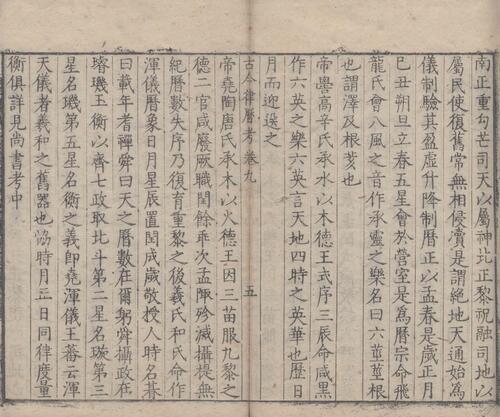 南正重勾芒司天以屬神北正黎祝融司地以
屬民使復舊常無相侵瀆是謂絶地天通始為
儀制驗其盈虛升降制曆正以孟春是歲正月
己丑朔旦立春五星會於營室是為曆宗命飛
龍氏會八風之音作承雲之樂名曰六莖莖根
也謂澤及根莖也
帝嚳高辛氏承水以木德王式序三辰命咸黑
作六英之樂六英言天地四時之英華也歷日
月而迎送之
古今律曆考卷九
五
帝堯陶唐氏承木以火德王因三苗服九黎之
德二官咸廢厥職閏餘乖次孟陬殄滅攝提無
紀曆數失序乃復育重黎之後羲氏和氏命作
渾儀曆象日月星辰置閏成歲敬授人時名朞
曰載年耆禪舜曰天之曆數在爾躬舜攝政在
璿璣玉衡以齊七政取北斗第二星名璇第三
星名璣第五星名衡之義即堯渾儀王蕃云渾
天儀者羲和之舊器也恊時月正日同律度量
衡俱詳見尚書考中